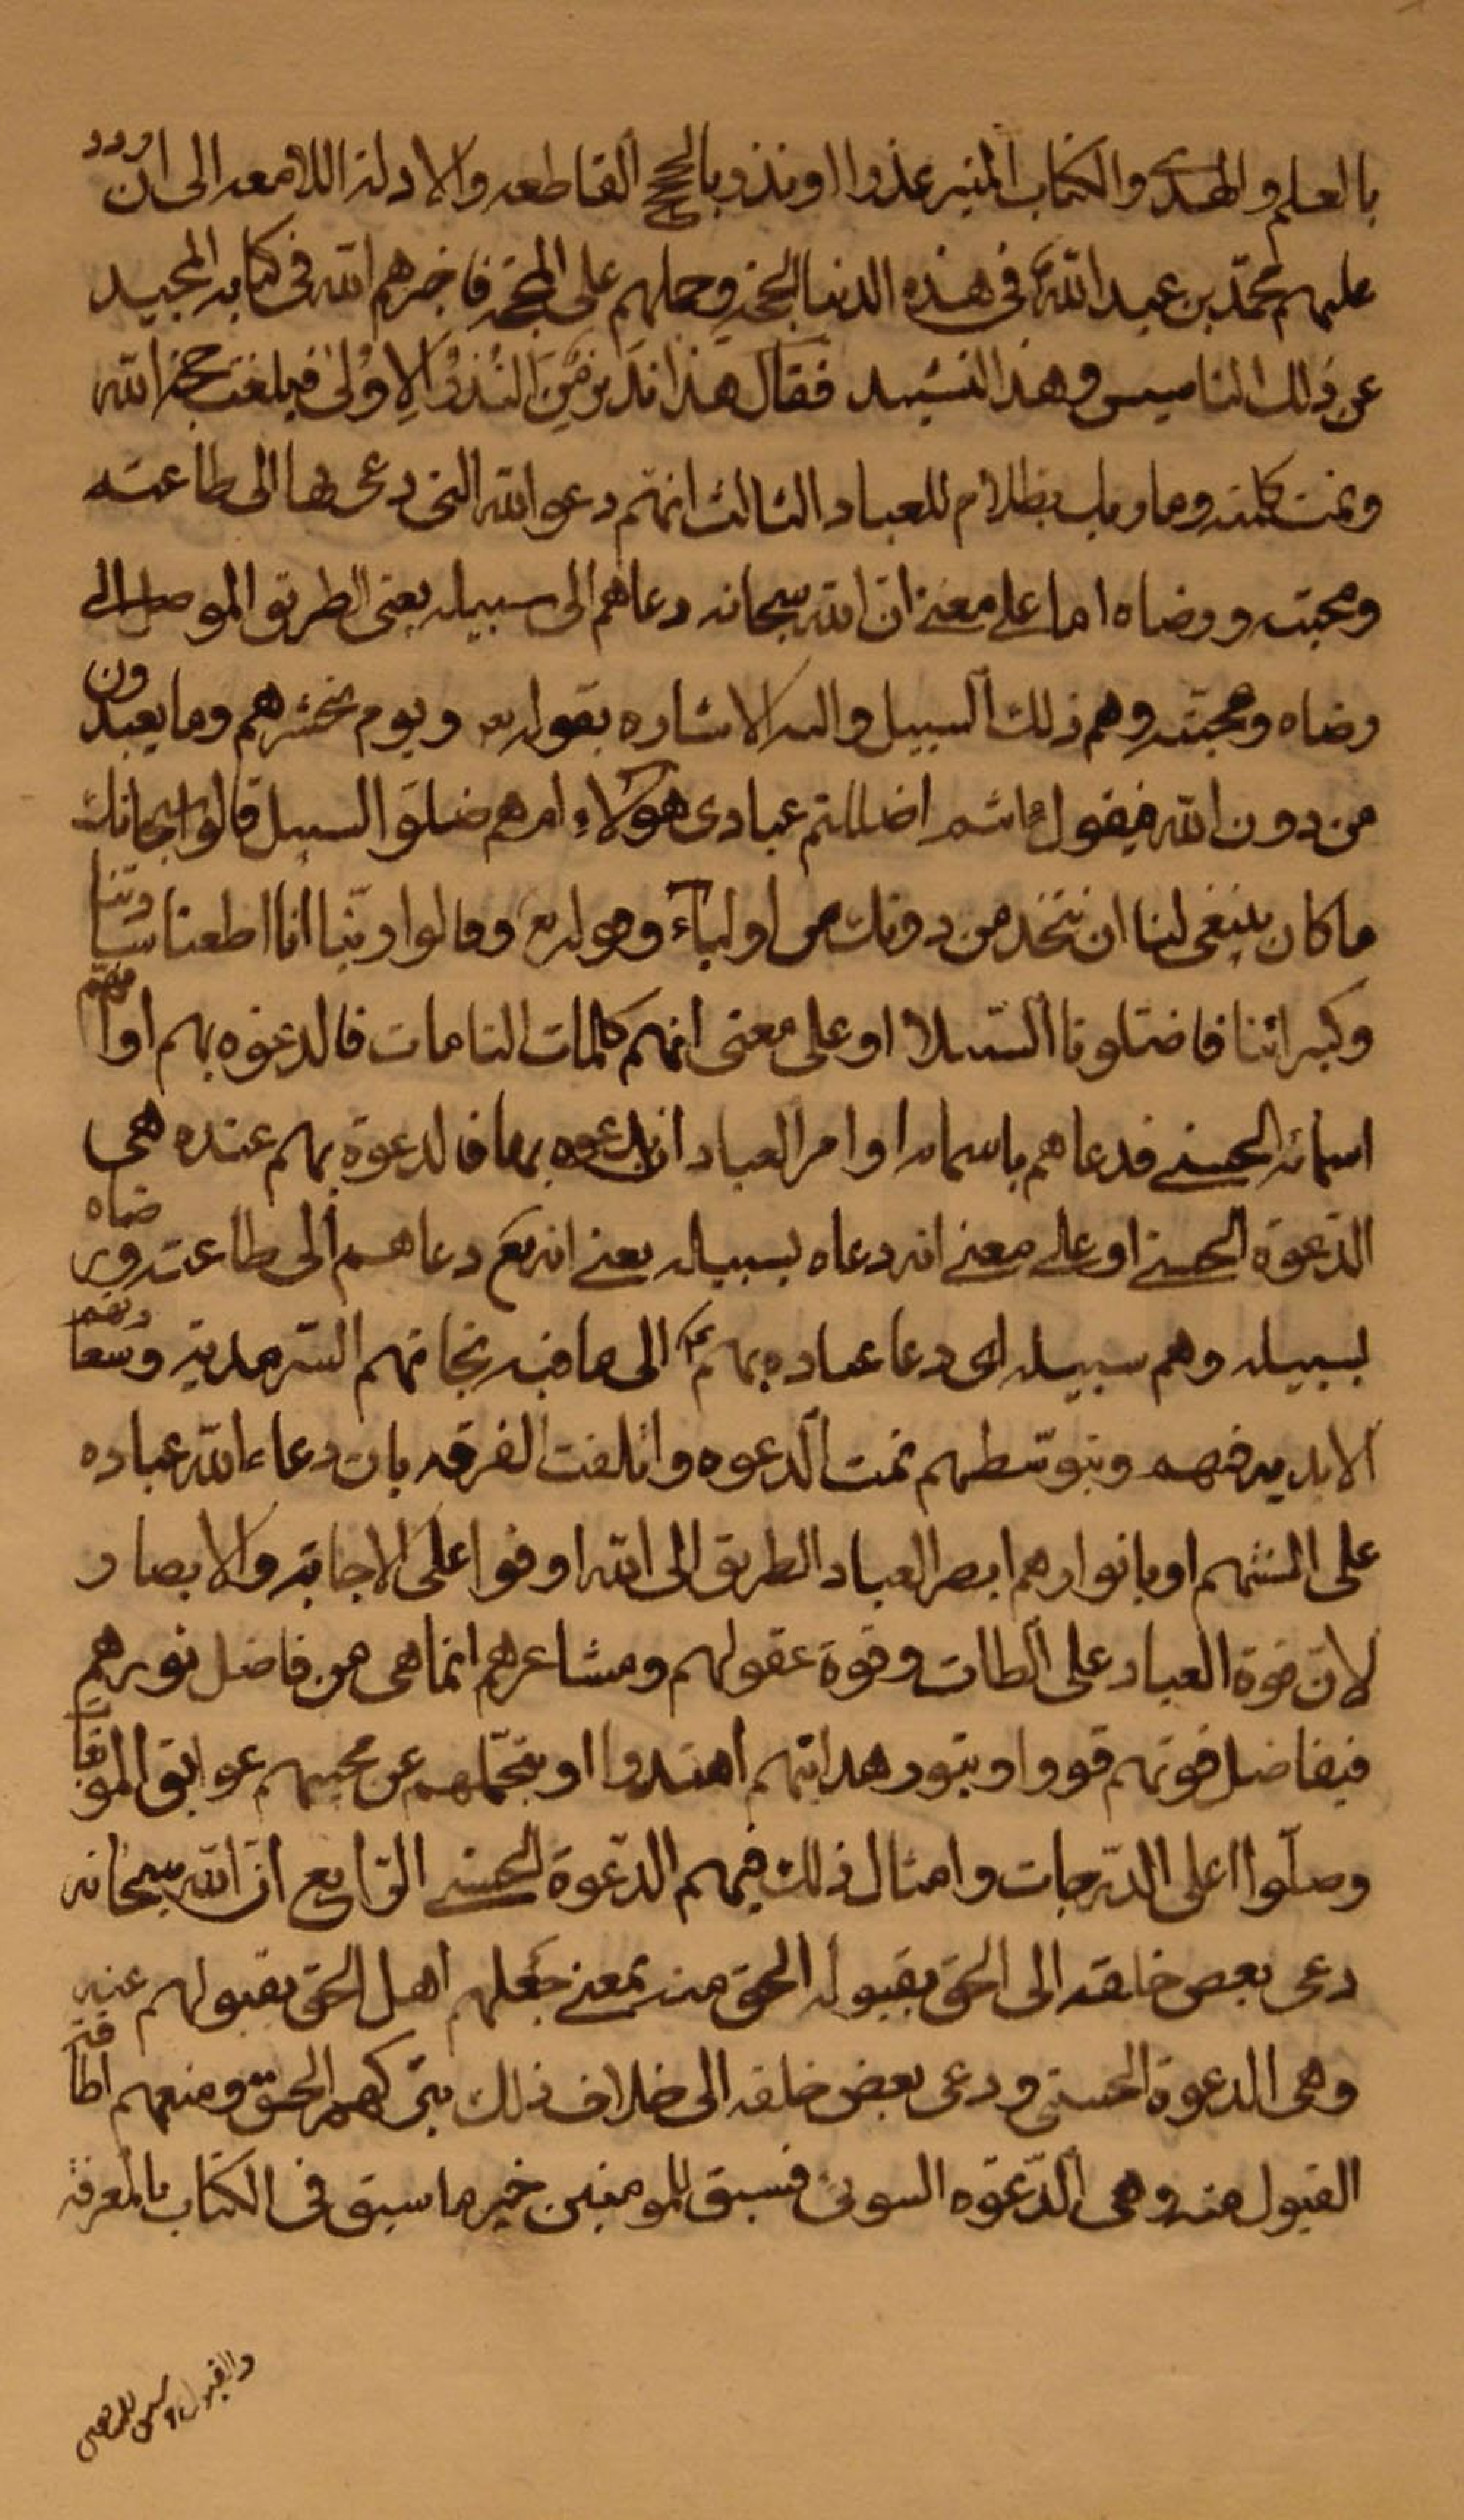 بالعلم والهدى والكتاب المنير عذرا او نذرا بالحجج القاطعه والادلة اللامعه الى ان اورد
عليهم محمد بن عبد الله في هذه الدنيا الحجة وحملهم على المحجة فاخبرهم الله في كتابه المجيد
عن ذلك التاسيس وهذا التشييد فقال هذا نذير مِنَ النُذُرِ الاُولى فبلغت حجة الله
وتمت كلمته وما ربك بظلام للعباد الثالث انهم دعوة الله التي دعى بها الى طاعته
ومحبته ورضاه اما على معنى ان الله سبحانه دعاهم الى سبيله يعنى الطريق الموصل الى
رضاه ومحبته وهم ذلك السبيل واليه الاشاره بقوله تع ويوم نحشرهم وما يعبدون
من دون الله فيقول ءانتم اضللتم عبادى هؤلاء ام هم ضلوا السبيل قالوا سبحانك
ما كان ينبغى لنا ان نتخذ من دونك من اولياء وقوله تع وقالوا ربّنا انا اطعنا سادتنا
وكبرائنا فاضلونا السبيلا او على معنى انهم كلمات التامات فالدعوه بهم او انهم
اسمائه الحسنى فدعاهم باسمائه او امر العباد ان يدعوه بها فالدعوة بهم عنده هى
الدعوة الحسنى او على معنى انه دعاه بسبيله يعنى انه تع دعاهم الى طاعته ورضاه
بسبيله وهم سبيله اى دعا عباده بهم ع الى ما فيه نجاتهم السّرمدية وسعادتهم
الابديه فبهم وبتوسّطهم تمت الدعوه وائلفت الفرقه بان دعاء الله عباده
على السنتهم او بانوارهم ابصر العباد الطريق الى الله او قووا على الاجابة والابصار
لان قوة العباد على الطاعات وقوة عقولهم ومشاعرهم انما هى من فاضل نورهم
فبفاضل قوتهم قووا وبنور هدايتهم اهتدوا او بتحملهم عن محبيهم عوايق الموبقات
وصلوا اعلى الدّرجات وامثال ذلك فبهم الدّعوة الحسنى الرّابع انّ الله سبحانه
دعى بعض خلقه الى الحق بقبوله الحق منه بمعنى جعلهم اهل الحق بقبولهم عنه
وهى الدعوة الحسنى ودعى بعض خلقه الى خلاف ذلك بتركهم الحق ومنعهم اطاقة
القبول منه وهى الدّعوه السوئى فسبق للمومنين خير ما سبق في الكتاب بالمعرفة
والقبول وسبق للمبغضين